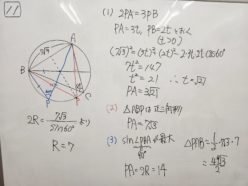 11
A
B
C
P
7√3
2R = 7√3/sin60° より
R = 7
(1) 2PA = 3PB
PA = 3t, PB = 2t とおく
(t>0)
(7√3)² = (3t)² + (2t)² - 2·3t·2t cos60°
7t² = 147
t² = 21 ∴ t = √21
PA = 3√21
(2) △ABPは正三角形
PA = 7√3
(3) sin∠PBAが最大
90°
PA = 2R = 14
△PAB = 1/2·7√3·7
= 49√3/2